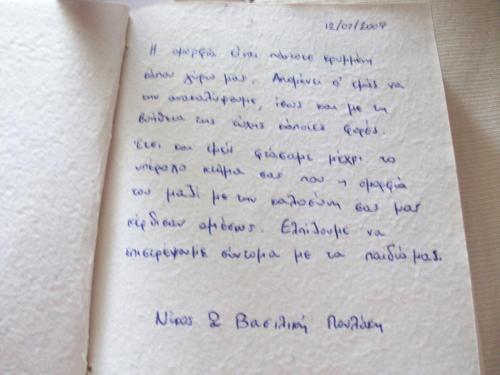 12/07/2009
Η ομορφιά είναι πάντοτε κρυμμένη
κάπου γύρω μας. Απομένει σ' εμάς να
την ανακαλύψουμε, ίσως και με τη
βοήθεια της τύχης κάποιες φορές.
Έτσι και εμείς φτάσαμε μέχρι το
υπέροχο κτήμα σας που η ομορφιά
του μαζί με την καλοσύνη σας μας
κέρδισαν αμέσως. Ελπίζουμε να
επιστρέψουμε σύντομα με τα παιδιά μας.
Νίκος & Βασιλική Πουλάκη